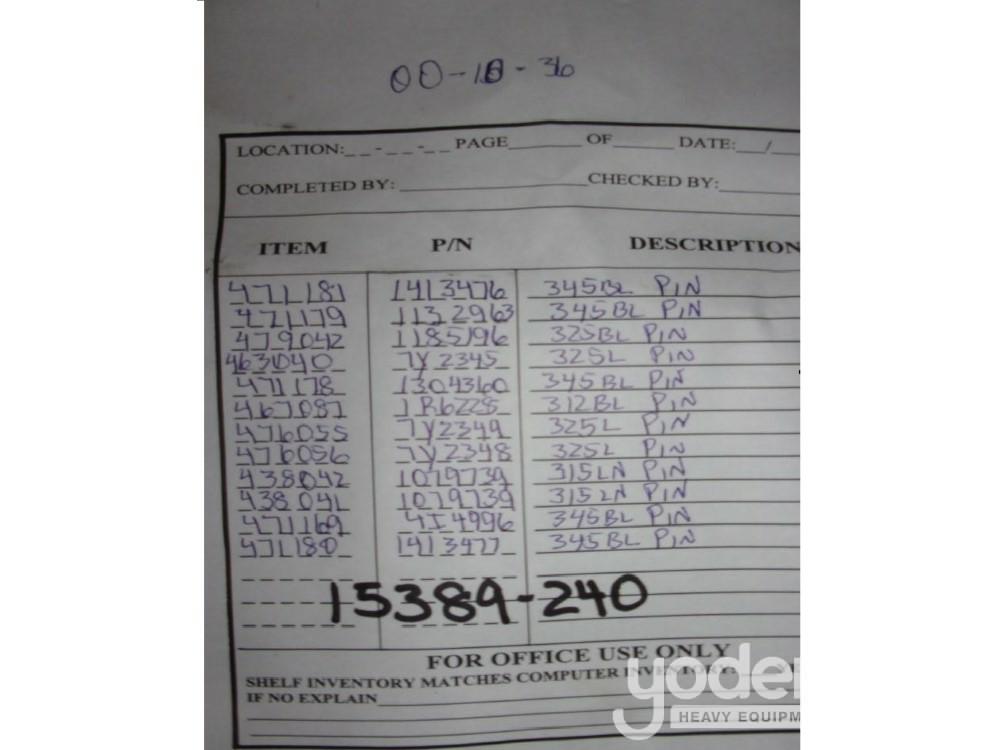 00-18-36
LOCATION:__-__-__ PAGE______ OF_____ DATE:__/__
COMPLETED BY: ______________ CHECKED BY:______
ITEM P/N DESCRIPTION
471181 1413476 345BL PIN
471179 1132963 345BL PIN
479042 1185196 325BL PIN
463040 7Y2345 325L PIN
471178 1304360 345BL PIN
467087 1R6228 312BL PIN
476055 7Y2349 325L PIN
476056 7Y2348 325L PIN
438042 1079739 315LN PIN
438041 1079739 315LN PIN
471169 4I4996 345BL PIN
471180 1413477 345BL PIN
15389-240
FOR OFFICE USE ONLY
SHELF INVENTORY MATCHES COMPUTER INVENTORY:
IF NO EXPLAIN
yoder
HEAVY EQUIPM